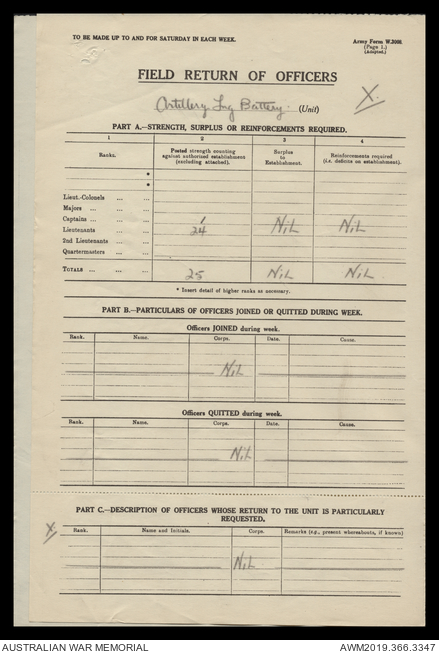 TO BE MADE UP TO AND FOR SATURDAY IN EACH WEEK.
Army Form W.3008.
(Page 1.)
(Adapted.)
FIELD RETURN OF OFFICERS
Artillery Trg Battery. (Unit)
X.
PART A.—STRENGTH, SURPLUS OR REINFORCEMENTS REQUIRED.
1 2 3 4
Ranks. Posted strength counting against authorized establishment (excluding attached). Surplus to Establishment. Reinforcements required (i.e. deficits on establishment).
*
*
Lieut.-Colonels ... ...
Majors ... ... ...
Captains ... ... ... 1 Nil Nil
Lieutenants ... ... 24
2nd Lieutenants ... ...
Quartermasters ... ...
TOTALS ... ... ... 25 Nil Nil.
* Insert detail of higher ranks as necessary.
PART B.—PARTICULARS OF OFFICERS JOINED OR QUITTED DURING WEEK.
Officers JOINED during week.
Rank. Name. Corps. Date. Cause.
Nil
Officers QUITTED during week.
Rank. Name. Corps. Date. Cause.
Nil
PART C.—DESCRIPTION OF OFFICERS WHOSE RETURN TO THE UNIT IS PARTICULARLY
REQUESTED.
X
Rank. Name and Initials. Corps. Remarks (e.g., present whereabouts, if known)
Nil
AUSTRALIAN WAR MEMORIAL
AWM2019.366.3347